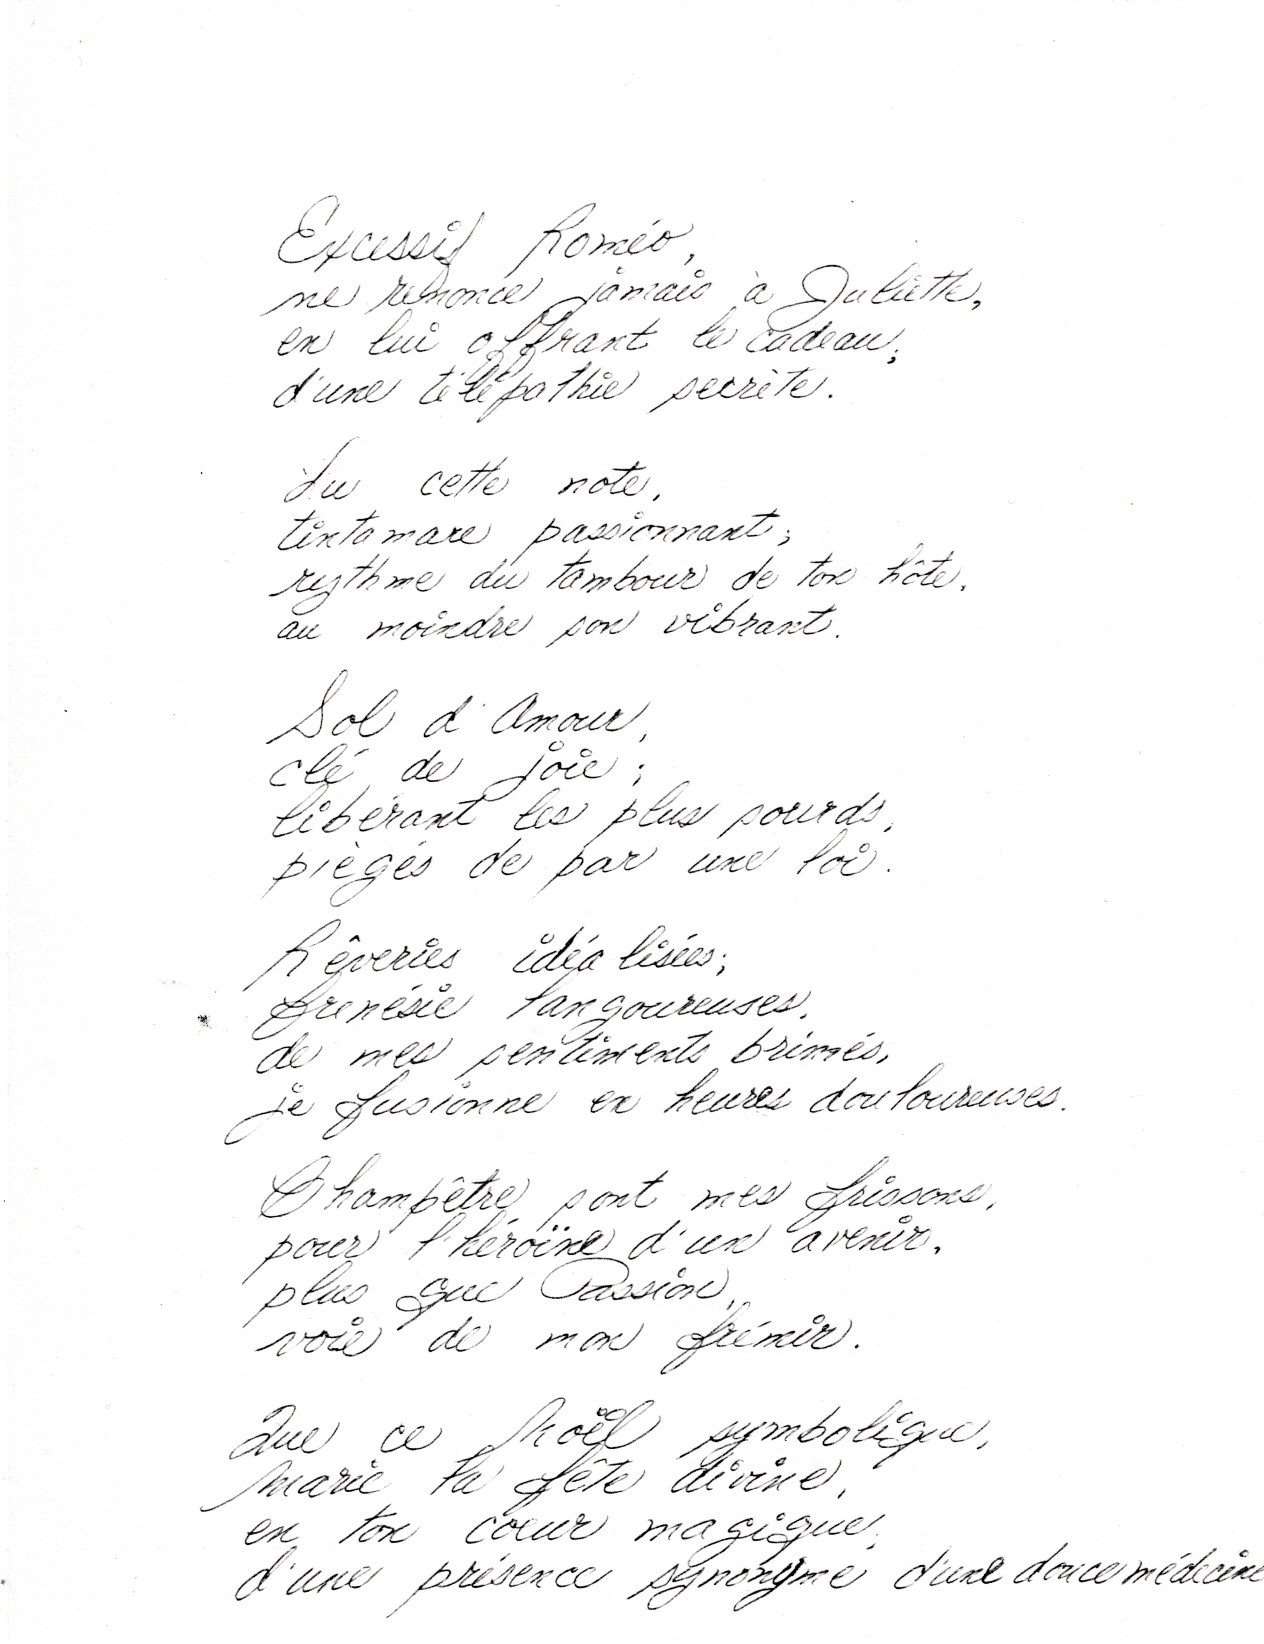 Excessif Roméo,
ne renonce jamais à Juliette,
en lui offrant le cadeau;
d'une télépathie secrète.
Lu cette note,
tintamare passionnant;
rythme du tambour de ton hôte,
au moindre son vibrant.
Sol d'Amour,
clé de joie;
libérant les plus sourds,
piègés de par une loi.
Rêveries idéalisées;
frénésie langoureuses,
de mes sentiments brimés,
je fusionne en heures douloureuses.
Champêtre sont mes frissons,
pour l'héroïne d'un avenir,
plus que Passion,
voie de mon frémir.
Que ce Noël symbolique,
Marie la fête divine,
en ton coeur magique,
d'une présence synonyme d'une douce médecine